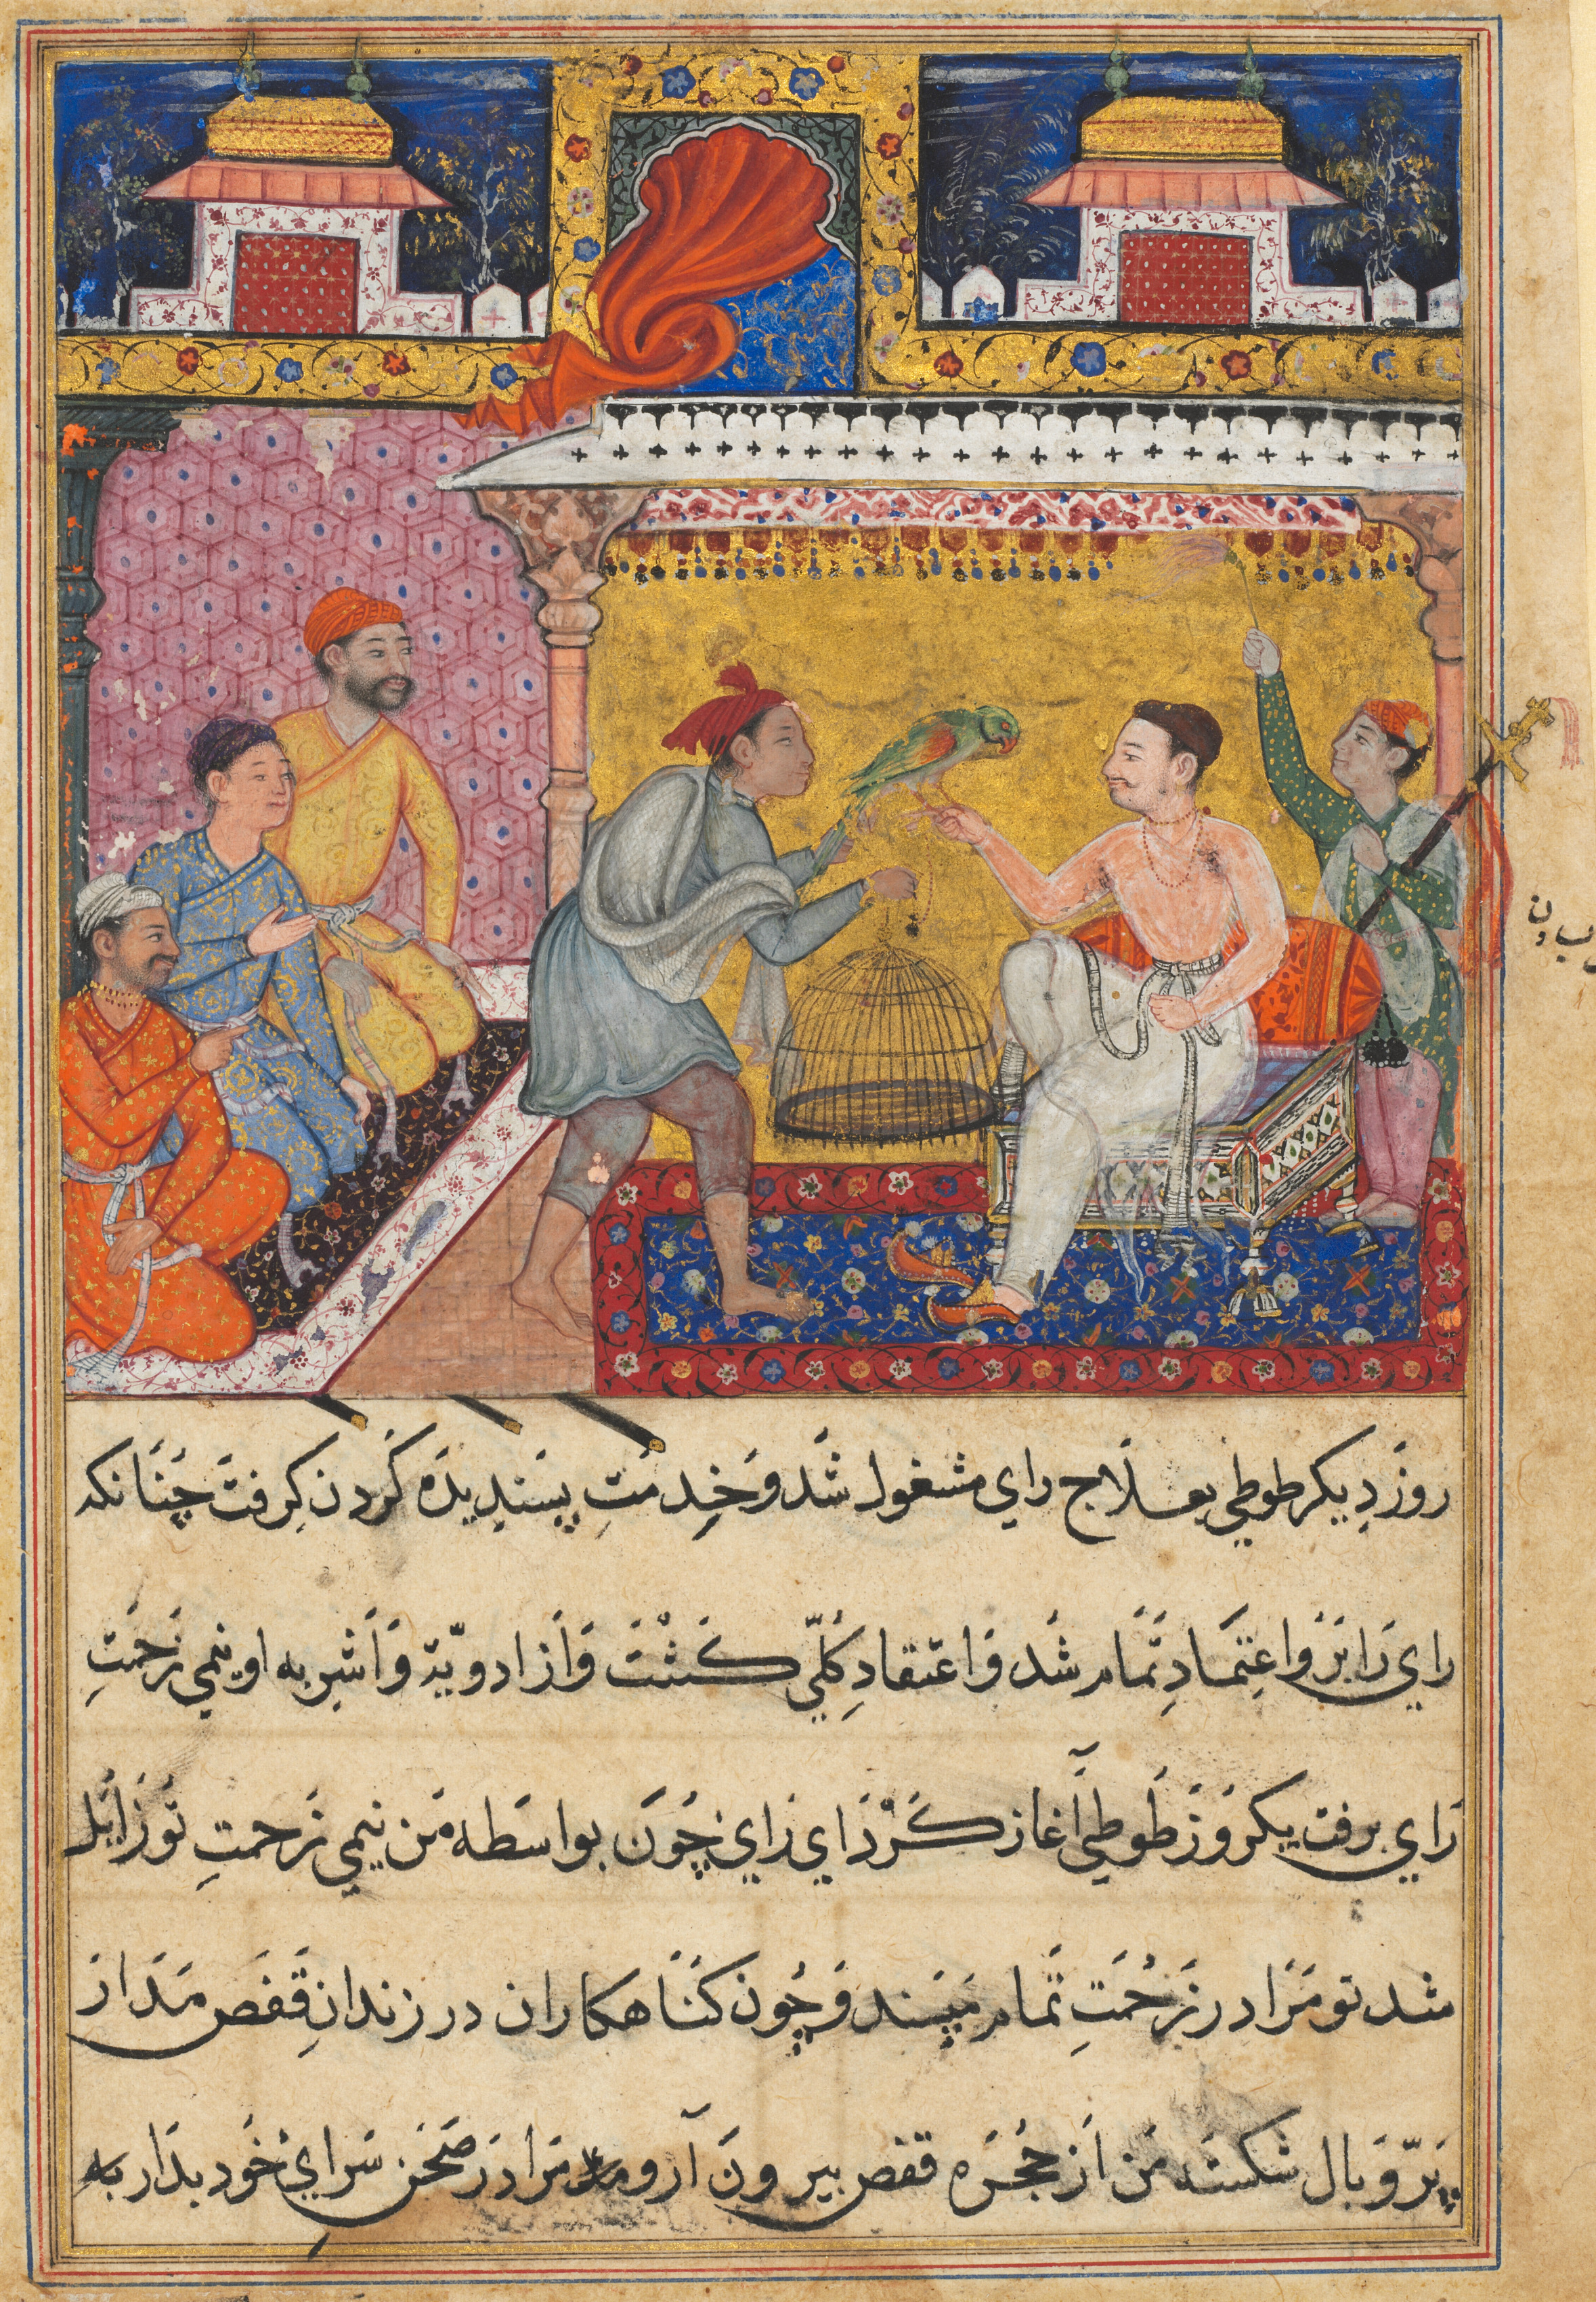 روز دیکر طوطي بعلاج راي مشغول شد و خدمت پسندیده کردن کرفت چنانکه
راي را برو اعتماد تمام شد و اعتقاد کلّي کشت و از ادویّة و اشربه او نیمي زحمت
راي برفت یکروز طوطي آغاز کرد اي راي چون بواسطه من نیمي زحمت تو زایل
شد تو مرا در زحمت تمام مپسند و چون کناهکاران در زندان قفص مدار
پرّ و بال شکسته من از حجره قفص بیرون آر و مرا در صحن سراي خود بدار به